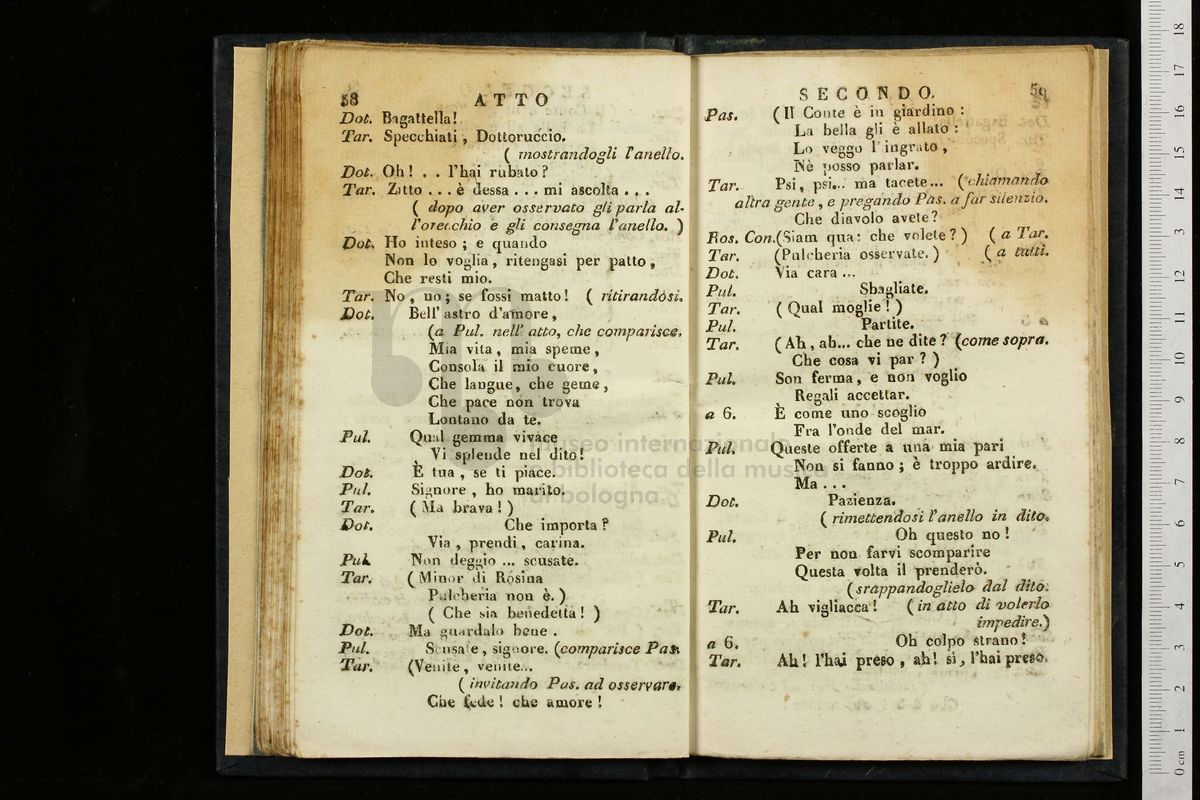 58 ATTO
Dot. Bagattella!
Tar. Specchiati, Dottoruccio.
( mostrandogli l'anello.
Dot. Oh! . . l'hai rubato?
Tar. Zitto . . . è dessa . . . mi ascolta . . .
( dopo aver osservato gli parla al-
l'orecchio e gli consegna l'anello. )
Dot. Ho inteso ; e quando
Non lo voglia, ritengasi per patto,
Che resti mio.
Tar. No, no; se fossi matto! ( ritirandosi.
Dot. Bell' astro d'amore,
(a Pul. nell' atto, che comparisce.
Mia vita, mia speme,
Consola il mio cuore,
Che langue, che geme,
Che pace non trova
Lontano da te.
Pul. Qual gemma vivace
Vi splende nel dito!
Dot. È tua, se ti piace.
Pul. Signore, ho marito.
Tar. ( Ma brava! )
Dot. Che importa?
Via, prendi, carina.
Pul. Non deggio ... scusate.
Tar. ( Minor di Rosina
Pulcheria non è. )
( Che sia benedetta! )
Dot. Ma guardalo bene.
Pul. Scusate, signore. (comparisce Pas.
Tar. (Venite, venite...
( invitando Pas. ad osservare.
Che fede! che amore!
SECONDO. 59
Pas. ( Il Conte è in giardino:
La bella gli è allato:
Lo veggo l'ingrato,
Nè posso parlar.
Tar. Psi, psi... ma tacete... ( chiamando
altra gente, e pregando Pas. a far silenzio.
Che diavolo avete?
Ros. Con. (Siam qua: che volete?) ( a Tar.
Tar. (Pulcheria osservate. ) ( a tutti.
Dot. Via cara ...
Pul. Sbagliate.
Tar. ( Qual moglie! )
Pul. Partite.
Tar. ( Ah, ah... che ne dite? (come sopra.
Che cosa vi par? )
Pul. Son ferma, e non voglio
Regali accettar.
a 6. È come uno scoglio
Fra l'onde del mar.
Pul. Queste offerte a una mia pari
Non si fanno; è troppo ardire.
Ma . . .
Dot. Pazienza.
( rimettendosi l'anello in dito.
Pul. Oh questo no!
Per non farvi scomparire
Questa volta il prenderò.
( srappandoglielo dal dito.
Tar. Ah vigliacca! ( in atto di volerlo
impedire.)
a 6. Oh colpo strano!
Tar. Ah! l'hai preso, ah! sì, l'hai preso.
museo internazionale
e biblioteca della musica
di bologna
0 cm 1 2 3 4 5 6 7 8 9 10 11 12 13 14 15 16 17 18